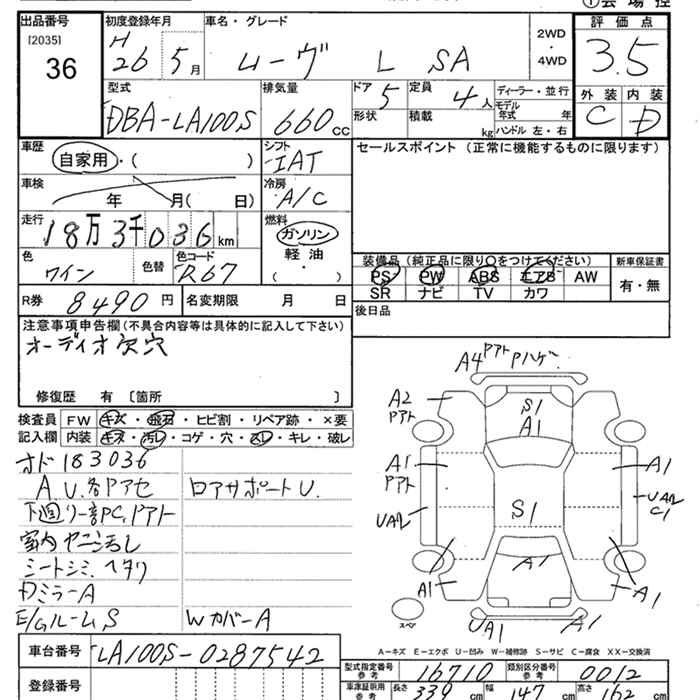 ①会場控
出品番号 初度登録年月 車名・グレード 2WD・4WD 評価点
[2035] H
36 26 5月 ムーヴ L SA 3.5
型式 排気量 ドア 定員 ディーラー・並行 外装 内装
DBA-LA100S 660cc 5 4人 モデル年式 年 C D
形状 積載 kg ハンドル 左・右
車歴 自家用・( ) シフト IAT セールスポイント (正常に機能するものに限ります)
車検 年 月( 日) 冷房 A/C
走行 18万3千036km 燃料 ガソリン
軽油
( )
色 ワイン 色替 色コード R67
装備品 (純正品に限り○をつけてください) 新車保証書
PS PW ABS エアB AW 有・無
SR ナビ TV カワ
R券 8490円 名変期限 月 日
後日品
注意事項申告欄(不具合内容等は具体的に記入して下さい)
オーディオ欠穴
修復歴 有 〔箇所 〕
検査員 FW キズ・飛石・ヒビ割・リペア跡・×要
記入欄 内装 キズ・汚レ・コゲ・穴・スレ・キレ・破レ
オド183036
A.U.各Pアセ ロアサポートU.
下廻り一部PC.Pアト
室内ヤニ汚レ
シートシミ.ヘタリ
DミラーA
E/GルームS WカバーA
A4 Pアト Pハゲ
A2 Pアト S1
A1
A1 Pアト A1
UA2 S1 UA2 C1
A1 A1 A1
スペア UA1 A1
A-キズ E-エクボ U-凹み W-補修跡 S-サビ C-腐食 XX-交換済
車台番号 LA100S-0287542
型式指定番号 参考 16710 類別区分番号 参考 0012
登録番号
車庫証明用 参考 長さ 339cm 幅 147cm 高さ 162cm